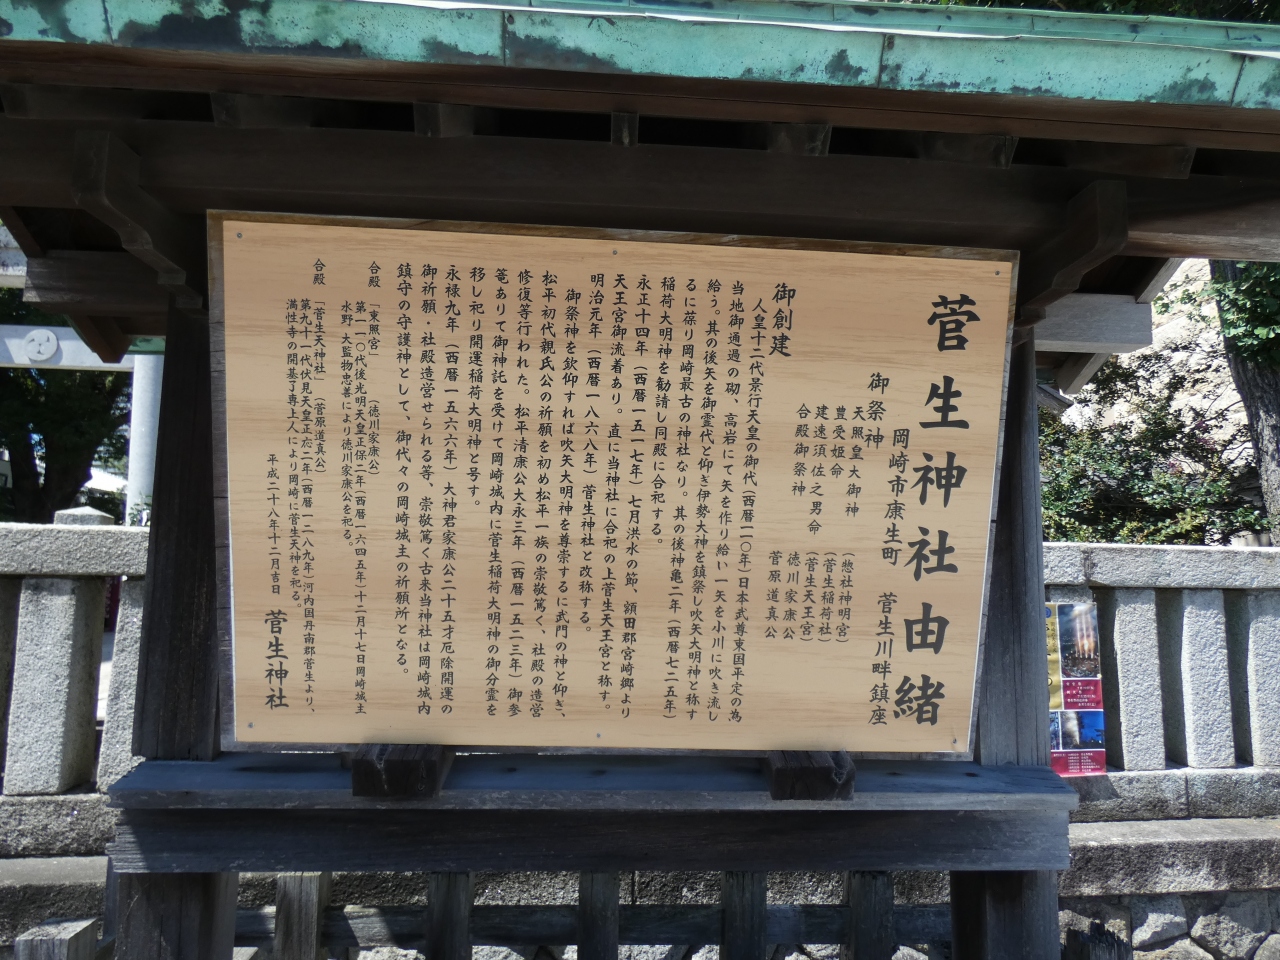 菅生神社由緒
岡崎市康生町　菅生川畔鎮座
御祭神
天照皇大御神　（惣社神明宮）
豊受姫命　（菅生稲荷社）
建速須佐之男命　（菅生天王宮）
合殿御祭神　徳川家康公
菅原道真公
御創建
人皇十二代景行天皇の御代（西暦一一〇年）日本武尊東国平定の為
当地御通過の砌、高岩にて矢を作り給い一矢を小川に吹き流し
給う。其の後矢を御霊代と仰ぎ伊勢大神を鎮祭し吹矢大明神と称す
るに葆り岡崎最古の神社なり。其の後神亀二年（西暦七二五年）
稲荷大明神を勧請し同殿に合祀する。
永正十四年（西暦一五一七年）七月洪水の節、額田郡宮崎郷より
天王宮御流着あり。直に当神社に合祀の上菅生天王宮と称す。
明治元年（西暦一八六八年）菅生神社と改称する。
御祭神を欽仰すれば吹矢大明神を尊崇するに武門の神と仰ぎ、
松平初代親氏公の祈願を初め松平一族の崇敬篤く、社殿の造営
修復等行われた。松平清康公大永三年（西暦一五二三年）御参
篭ありて御神託を受けて岡崎城内に菅生稲荷大明神の御分霊を
移し祀り開運稲荷大明神と号す。
永禄九年（西暦一五六六年）大神君家康公二十五才厄除開運の
御祈願・社殿造営せられる等、崇敬篤く古来当神社は岡崎城内
鎮守の守護神として、御代々の岡崎城主の祈願所となる。
合殿　「東照宮」　（徳川家康公）
第一一〇代後光明天皇正保二年（西暦一六四五年）十二月十七日岡崎城主
水野大監物忠善により徳川家康公を祀る。
合殿　「菅生天神社」（菅原道真公）
第九十一代伏見天皇正応二年（西暦一二八九年）河内国丹南郡菅生より、
満性寺の開基了専上人により岡崎に菅生天神を祀る。
平成二十八年十二月吉日　菅生神社